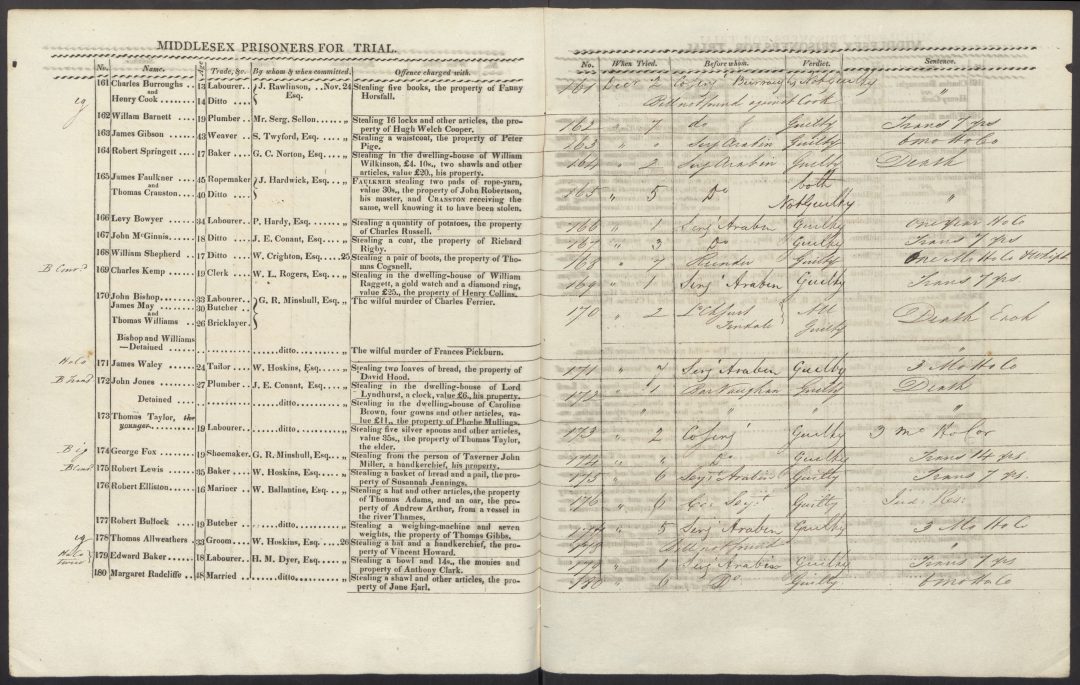 MIDDLESEX PRISONERS FOR TRIAL.
No. Name. Age Trade, &c. By whom & when committed. Offence charged with.
161 Charles Burroughs 13 Labour.. J. Rawlinson, ..Nov. 24 Stealing five books, the property of Fanny
and Esq. Horsfall.
Henry Cook 14 Ditto
162 Willam Barnett 19 Plumber Mr. Serg. Sellon „ Stealing 16 locks and other articles, the pro-
perty of Hugh Welch Cooper.
163 James Gibson 43 Weaver S. Twyford, Esq. „ Stealing a waistcoat, the property of Peter
Pige.
164 Robert Springett 17 Baker G. C. Norton, Esq. „ Stealing in the dwelling-house of William
Wilkinson, £4. 10s., two shawls and other
articles, value £20., his property.
165 James Faulkner 45 Ropemaker J. Hardwick, Esq. „ FAULKNER stealing two pads of rope-yarn,
and value 30s., the property of John Robertson,
Thomas Crauston 40 Ditto his master, and CRANSTON receiving the
same, well knowing it to have been stolen.
166 Levy Bowyer 34 Labourer P. Hardy, Esq. „ Stealing a quantity of potatoes, the property
of Charles Russell.
167 John McGinnis 18 Ditto J. E. Conant, Esq. „ Stealing a coat, the property of Richard
Rigby.
168 William Shepherd 17 Ditto W. Crighton, Esq. 25 Stealing a pair of boots, the property of Tho-
mas Cogsnell.
169 Charles Kemp 19 Clerk W. L. Rogers, Esq. „ Stealing in the dwelling-house of William
Raggett, a gold watch and a diamond ring,
value £25., the property of Henry Collins.
170 John Bishop 33 Labourer G. R. Minshull, Esq. „ The wilful murder of Charles Ferrier.
James May 30 Butcher
and
Thomas Williams 26 Bricklayer
Bishop and Williams
—Detained ditto „ The wilful murder of Frances Pickburn.
171 James Waley 24 Tailor W. Hoskins, Esq. „ Stealing two loaves of bread, the property of
David Hood.
172 John Jones 27 Plumber J. E. Conant, Esq. „ Stealing in the dwelling-house of Lord
Lyndhurst, a clock, value £6., his property.
Detained ditto „ Stealing in the dwelling-house of Caroline
Brown, four gowns and other articles, va-
lue £11., the property of Phœbe Mullings.
173 Thomas Taylor, the
younger 19 Labourer ditto „ Stealing five silver spoons and other articles,
value 35s., the property of Thomas Taylor,
the elder.
174 George Fox 19 Shoemaker G. R. Minshull, Esq. „ Stealing from the person of Taverner John
Miller, a handkerchief, his property.
175 Robert Lewis 35 Baker W. Hoskins, Esq. „ Stealing a basket of bread and a pail, the pro-
perty of Susannah Jennings.
176 Robert Elliston 16 Mariner W. Ballantine, Esq. „ Stealing a hat and other articles, the property
of Thomas Adams, and an oar, the pro-
perty of Andrew Arthur, from a vessel in
the river Thames.
177 Robert Bullock 19 Butcher ditto „ Stealing a weighing-machine and seven
weights, the property of Thomas Gibbs.
178 Thomas Allweathers 33 Groom W. Hoskins, Esq. 26 Stealing a hat and a handkerchief, the pro-
perty of Vincent Howard.
179 Edward Baker 18 Labourer H. M. Dyer, Esq. „ Stealing a bowl and 14s., the monies and
property of Anthony Clark.
180 Margaret Radcliffe 48 Married ditto „ Stealing a shawl and other articles, the pro-
perty of Jone Earl.
No. When Tried. Before whom. Verdict. Sentence.
161 2 Burroughs Not Guilty „
Bill not found against Cook
162 „ 7 do Guilty Trans 7 yrs
163 „ „ Serj Arabin Guilty 6 mo Ho Co
164 „ 2 Serj Arabin Guilty Death
165 „ 5 Do both „
Not Guilty
166 „ 1 Serj Arabin Guilty One Year Ho Co
167 „ 3 Do Guilty Trans 7 yrs
168 „ 7 Guilty One Mo Ho Co & whipt
169 „ 1 Serj Arabin Guilty Trans 7 yrs
170 „ 2 Tindall All Death
Guilty
171 „ 7 Serj Arabin Guilty 3 Mo Ho Co
172 „ 1 Bar Vaughan Guilty Death
„ „ „ „
173 „ 2 Co Serj Guilty 3 mo Ho Cor
174 „ „ Do Guilty Trans 14 yrs
175 „ 6 Serj Arabin Guilty Trans 7 yrs
176 „ Co Serj Guilty
177 „ 5 Serj Arabin Guilty 3 Mo Ho Co
178 Bill not found „
179 „ 1 Serj Arabin Guilty Trans 7 yrs
180 „ 6 Do Guilty 6 mo Ho Co